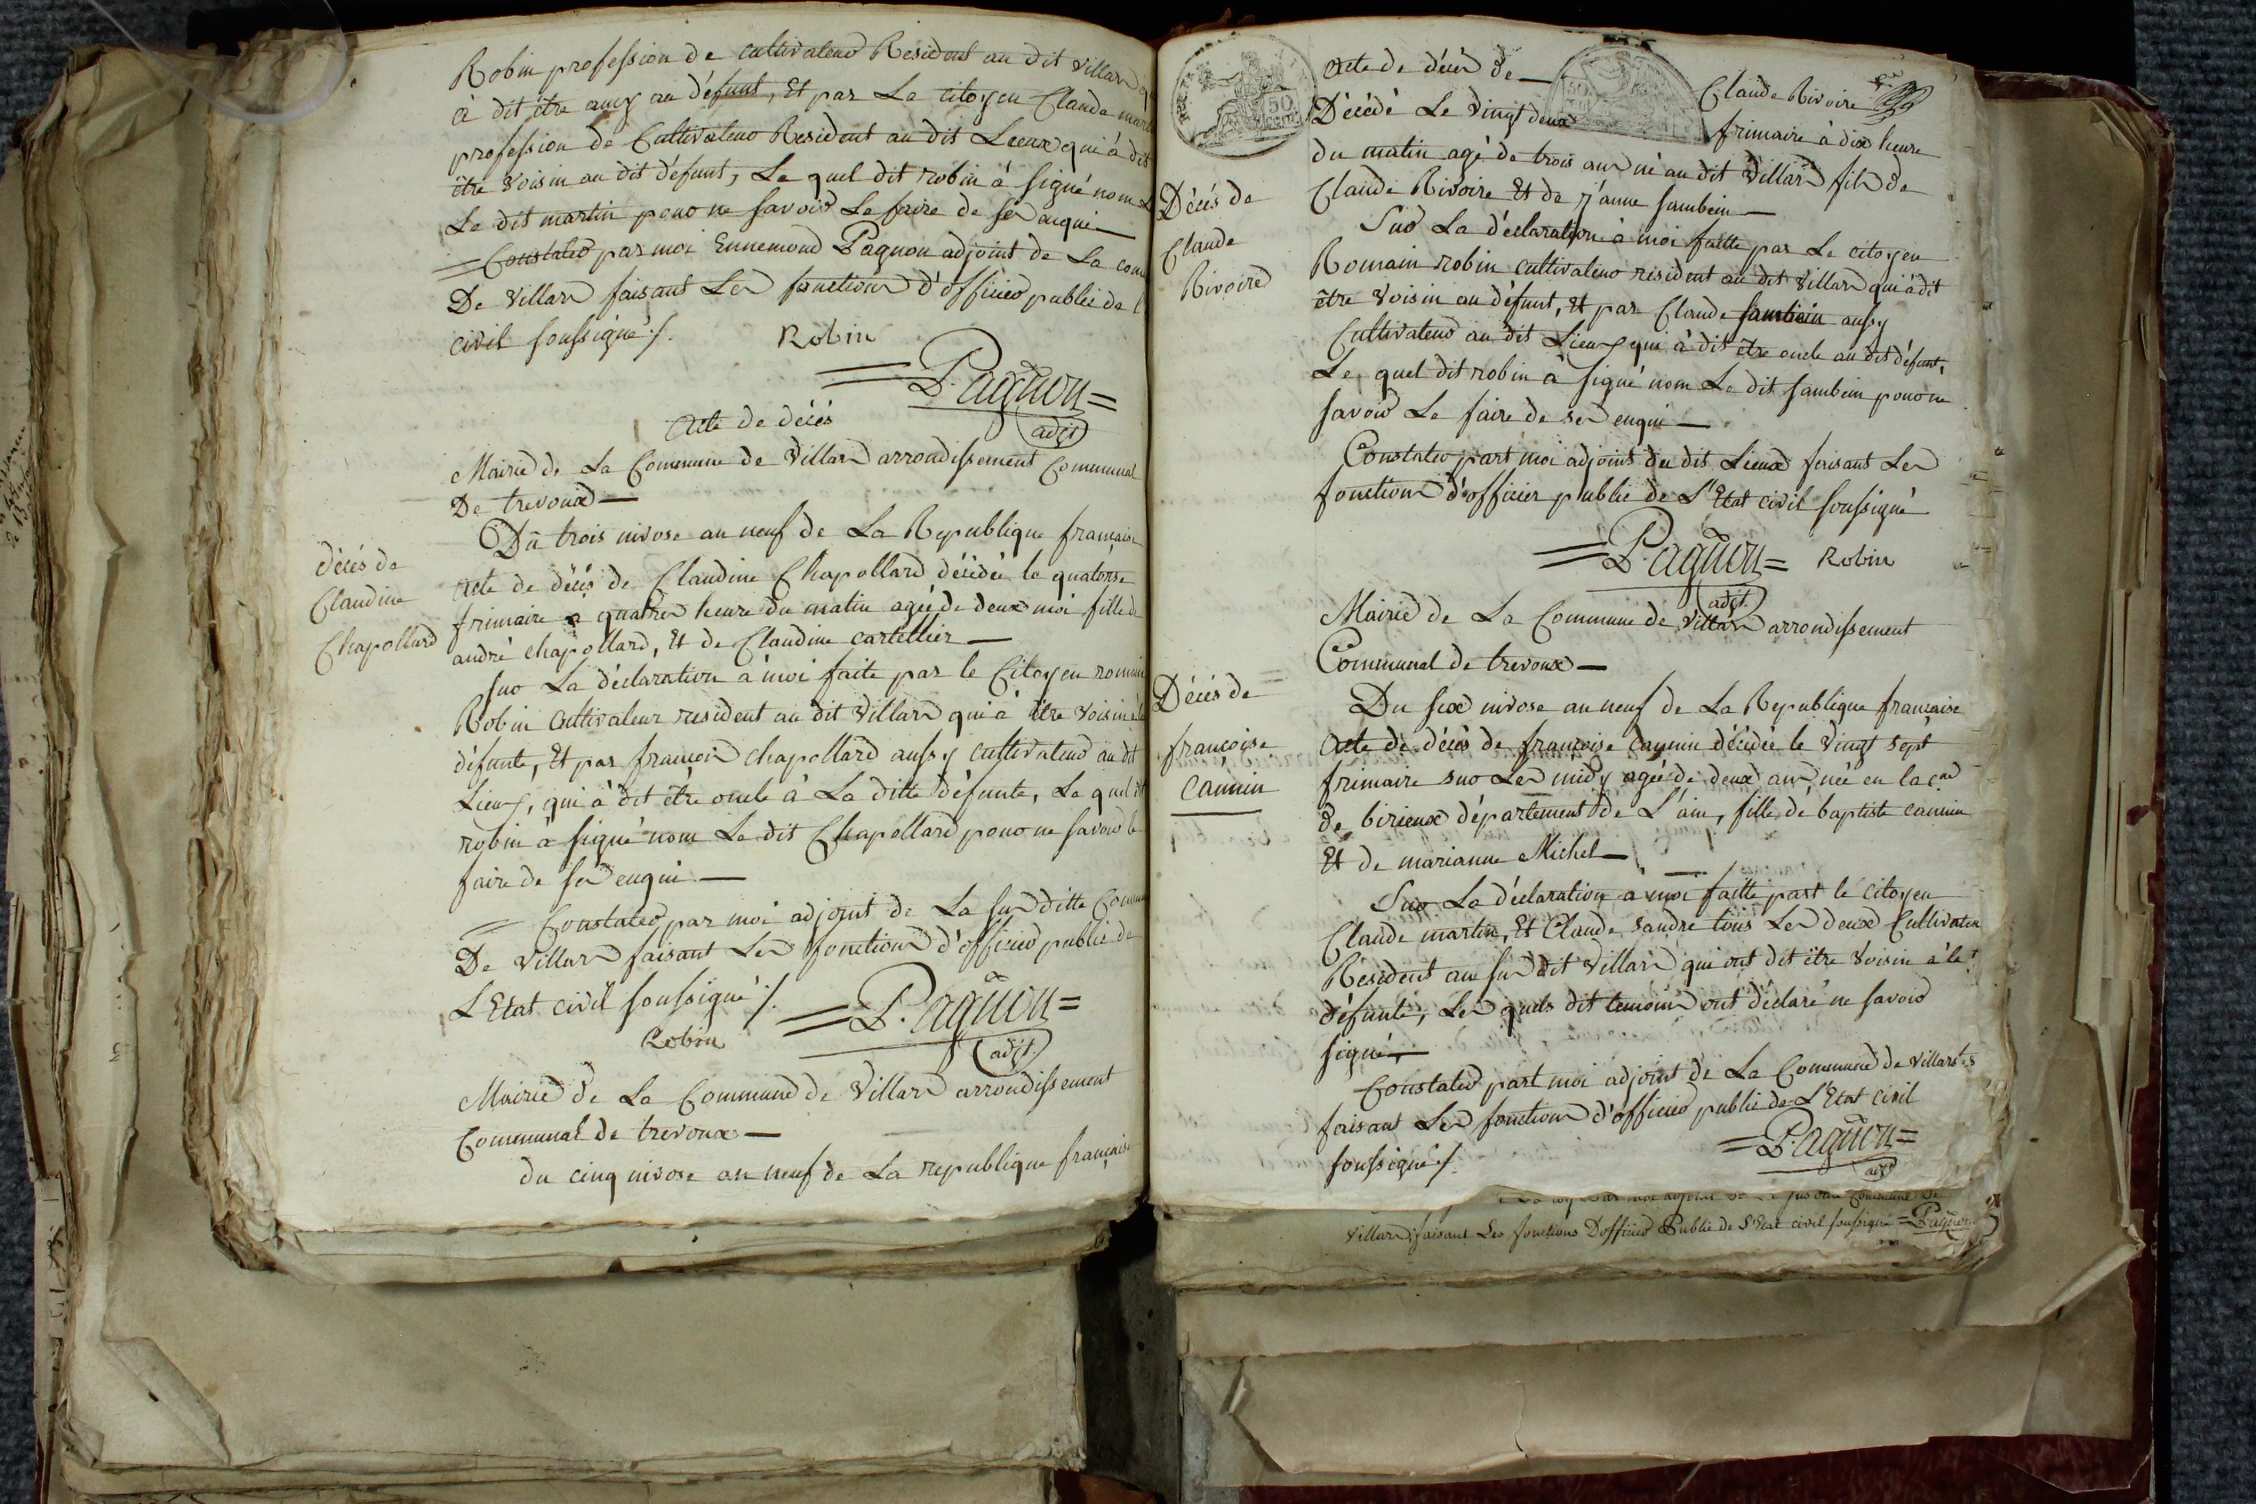 Robin profession de cultivateur Resident au dit villard
à dit être amy au défunt, Et par Le citoyen Claude
profession de Cultivateur Resident au dit Lieux qui à dit
être voisin au dit défunt, Le quel dit robin à signé nom
Le dit martin pour ne savoir Le faire de ser enqui
= Constater par moi Ennemond Pagnon adjoint de La
De villard faisant Les fonctions d'officier public de
civil soussigné ./.
Robin
= Pagnon =
adjt
Acte de décés
Mairie de La Commune de Villard arrondissement Communal
De trevoux —
Du trois nivose an neuf de La Republique française
décés de
Claudine
Chapollard
Acte de décés de Claudine Chapollard décédée le quatorse
frimaire a quatres heure du matin agée de deux moi fille de
andré chapollard, Et de Claudine cartellier —
sur La déclaration à moi faite par le Citoyen romain
Robin cultivateur resident au dit villard qui à être voisin
défunte, Et par françois chapollard aussy cultivateur au dit
Lieux, qui à dit être oncle à La ditte défunte, Le quel dit
robin à signé nom Le dit Chapollard pour ne savoir le
faire de ser enqui —
= Constater par moi adjoint de La sur ditte
De villard faisant Les fonctions d'officier public de
L'Etat civil soussigné ./.
Robin
= Pagnon =
adjt.
Mairie de La Commune de Villard arrondissement
Communal de trevoux —
du cinq nivose an neuf de La republique française
Acte de décés de — Claude Rivoire
Décédé Le vingt deux frimaire à dix heure
du matin agé de trois ans né au dit villard fils de
Claude Rivoire Et de jéanne sambein —
Décés de
Claude
Rivoire
Sur La déclaration à moi faitte par Le citoyen
Romain robin cultivateur resident au dit villard qui à dit
être voisin au défunt, Et par Claude sambein aussy
Cultivateur au dit Lieux qui à dit être oncle au dit défunt,
Le quel dit robin à signé nom Le dit sambein pour ne
savoir Le faire de ser enqui —
Constater part moi adjoint du dit Lieux faisant Les
fonctions d'officier public de L'Etat civil soussigné
= Pagnon = Robin
adjt.
Mairie de La Commune de Villard arrondissement
Communal de trevoux —
Du six nivose an neuf de La Republique française
Décés de
françoise
cannin
Acte de décés de françoise cannin décédée le vingt sept
frimaire sur Les midy agée de deux ans née en la cne
de birieux département de L'ain, fille de baptiste cannin
Et de marianne Michel —
Sur La déclaration à moi faitte part le citoyen
Claude martin, Et Claude sandre tous Les deux Cultivateur
Résident au sur dit villard qui ont dit être voisin à le
défunte, Les quels dit temoins ont déclaré ne savoir
signé —
Constater part moi adjoint de La Commune de villard
faisant Les fonctions d'officier public de L'Etat civil
soussigné ./.
= Pagnon =
adjt
Villard faisant Les fonctions D'officier Public de L'Etat civil soussigné = Pagnon